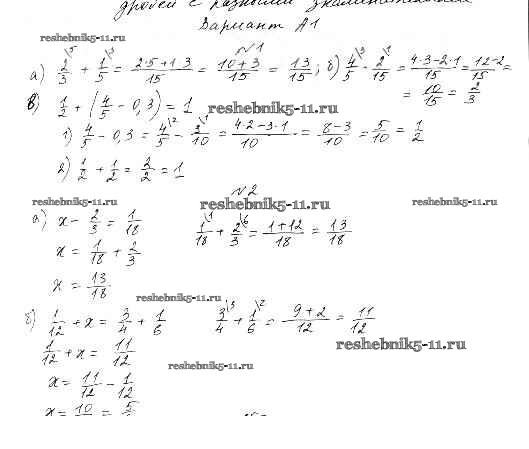 дробей с разными знаменателями
Вариант А1
reshebnik5-11.ru
№1
а) 2/3 \5 + 1/5 \3 = (2·5+1·3)/15 = (10+3)/15 = 13/15; б) 4/5 \3 - 2/15 \1 = (4·3-2·1)/15 = (12-2)/15 =
= 10/15 = 2/3
в) 1/2 + (4/5 - 0,3) = 1
reshebnik5-11.ru
1) 4/5 - 0,3 = 4/5 \2 - 3/10 \1 = (4·2-3·1)/10 = (8-3)/10 = 5/10 = 1/2
2) 1/2 + 1/2 = 2/2 = 1
№2
reshebnik5-11.ru reshebnik5-11.ru reshebnik5-11.ru
а) x - 2/3 = 1/18
1/18 \1 + 2/3 \6 = (1+12)/18 = 13/18
x = 1/18 + 2/3
x = 13/18
reshebnik5-11.ru
б) 1/12 + x = 3/4 + 1/6
3/4 \3 + 1/6 \2 = (9+2)/12 = 11/12
1/12 + x = 11/12
reshebnik5-11.ru
reshebnik5-11.ru
x = 11/12 - 1/12
x = 10 = 5